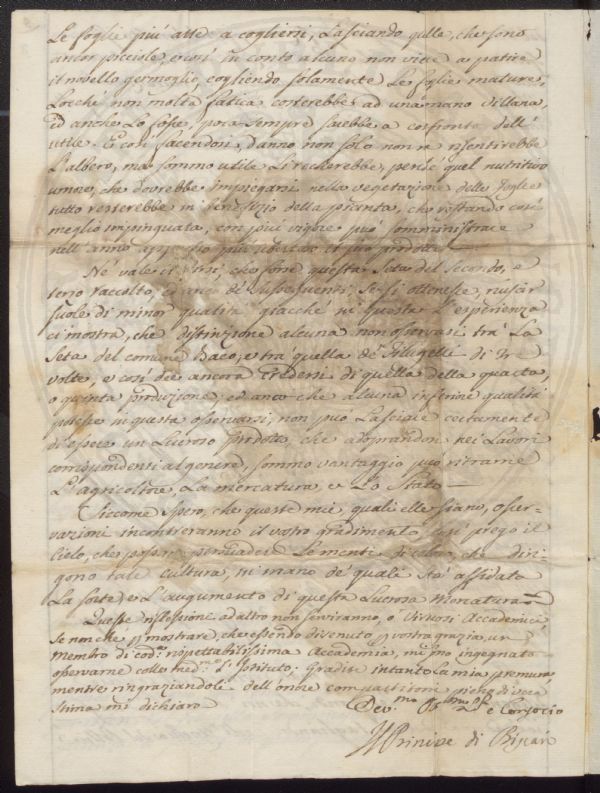 Le foglie più atte a cogliersi, Lasciando quelle, che sono
ancor picciole, e così in conto alcuno non viene a patire
il novello germoglio, cogliendo solamente Le foglie mature,
Locché non molta fatica costerebbe ad una mano villana,
ed anche Lo fosse, poca sempre sarebbe a confronto dell'
utile. E così facendosi, danno non solo non ne risentirebbe
L'albero, ma sommo utile Li recherebbe, perché quel nutritivo
umore, che dovrebbe impiegarsi nella vegetazione delle foglie
tutto resterebbe in benefizio della pianta, che restando così
meglio impinguata, con più vigore può somministrare
nell'anno appresso più ubertoso il suo prodotto
Né vale il dirsi, che forse questa Seta del secondo, e
terzo raccolto, ed anco de' susseguenti, se si ottenesse, riuscir
suole di minor qualità, giacché in questa L'esperienza
ci mostra, che distinzione alcuna non osservasi trà La
Seta del comune Baco, e tra quella de' Filugelli di tre
volte, e così dee ancora credersi di quella della quarta,
o quinta produzione, ed anco che alcuna inferiore qualità
potesse in questa osservarsi, non può Lasciare certamente
di essere un Lucroso prodotto, che adoprandosi nei Lavori
corrispondenti al genere, sommo vantaggio può ritrarne
L'agricoltore, La mercatura, e Lo Stato —
Siccome spero, che queste mie, quali elle siano, osser-
vazioni incontreranno il vostro gradimento, così prego il
Cielo, che possano persuadere Le menti di coloro, che diri-
gono tale cultura, in mano de' quali stà affidata
La sorte, e L'augumento di questa Lucrosa Mercatura —
Queste riflessioni ad altro non serviranno, o Virtuosi Accademici
se non che p mostrare, che essendo divenuto p vostra grazia, un
membro di cod.ª rispettabilissima Accademia, mi sono ingegnato
operarne collo med.mo L'Istituto; Gradite intanto La mia premura
mentre ringraziandole dell'onore compartitomi pieno di vera
stima mi dichiaro
Dev.mo Obb.mo Se.e Consocio
Il Principe di Biscari